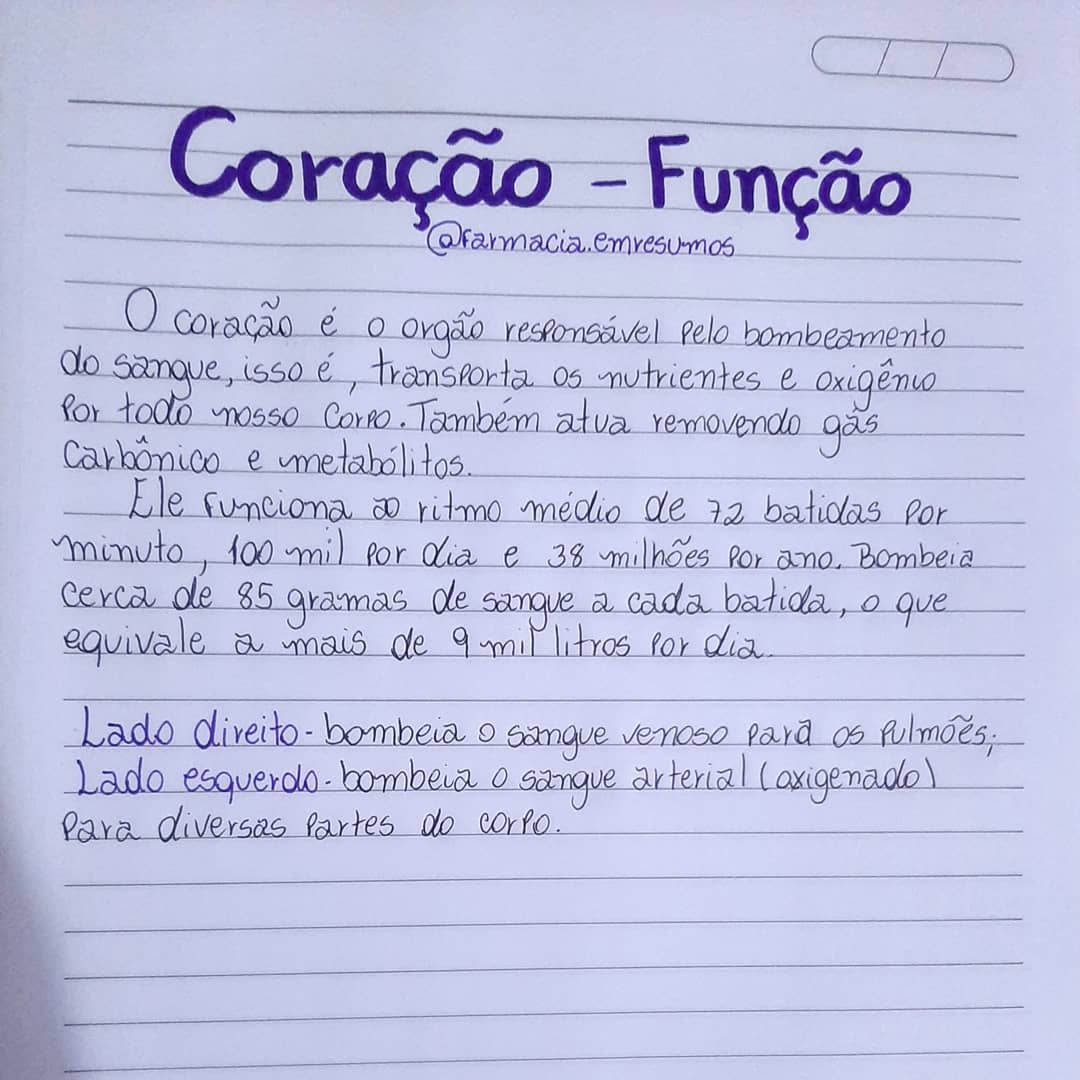 Coração - Função
@farmacia.emresumos
O coração é o orgão responsável pelo bombeamento
do sangue, isso é, transporta os nutrientes e oxigênio
por todo nosso corpo. Também atua removendo gás
carbônico e metabólitos.
Ele funciona ao ritmo médio de 72 batidas por
minuto, 100 mil por dia e 38 milhões por ano. Bombeia
cerca de 85 gramas de sangue a cada batida, o que
equivale a mais de 9 mil litros por dia.
Lado direito - bombeia o sangue venoso para os pulmões;
Lado esquerdo - bombeia o sangue arterial (oxigenado)
para diversas partes do corpo.